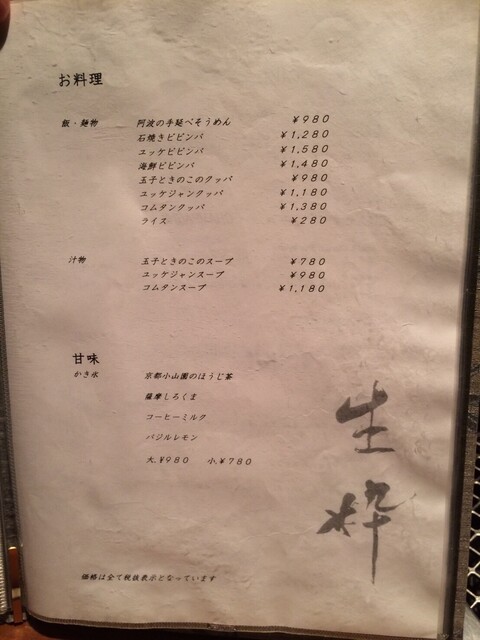 お料理
飯・麺物 阿波の手延べそうめん ¥980
石焼きビビンバ ¥1,280
ユッケビビンバ ¥1,580
海鮮ビビンバ ¥1,480
玉子ときのこのクッパ ¥980
ユッケジャンクッパ ¥1,180
コムタンクッパ ¥1,380
ライス ¥280
汁物 玉子ときのこのスープ ¥780
ユッケジャンスープ ¥980
コムタンスープ ¥1,180
甘味
かき氷 京都小山園のほうじ茶
薩摩しろくま
コーヒーミルク
バジルレモン
大.¥980 小.¥780
生粋
価格は全て税抜表示となっています